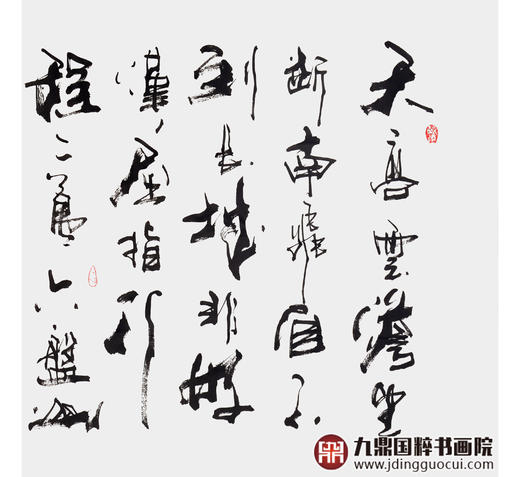 天高雲澹望
断南飛雁不
到長城非好
漢屈指行
程二萬六盤山
九鼎国粹书画院
www.jdingguocui.com